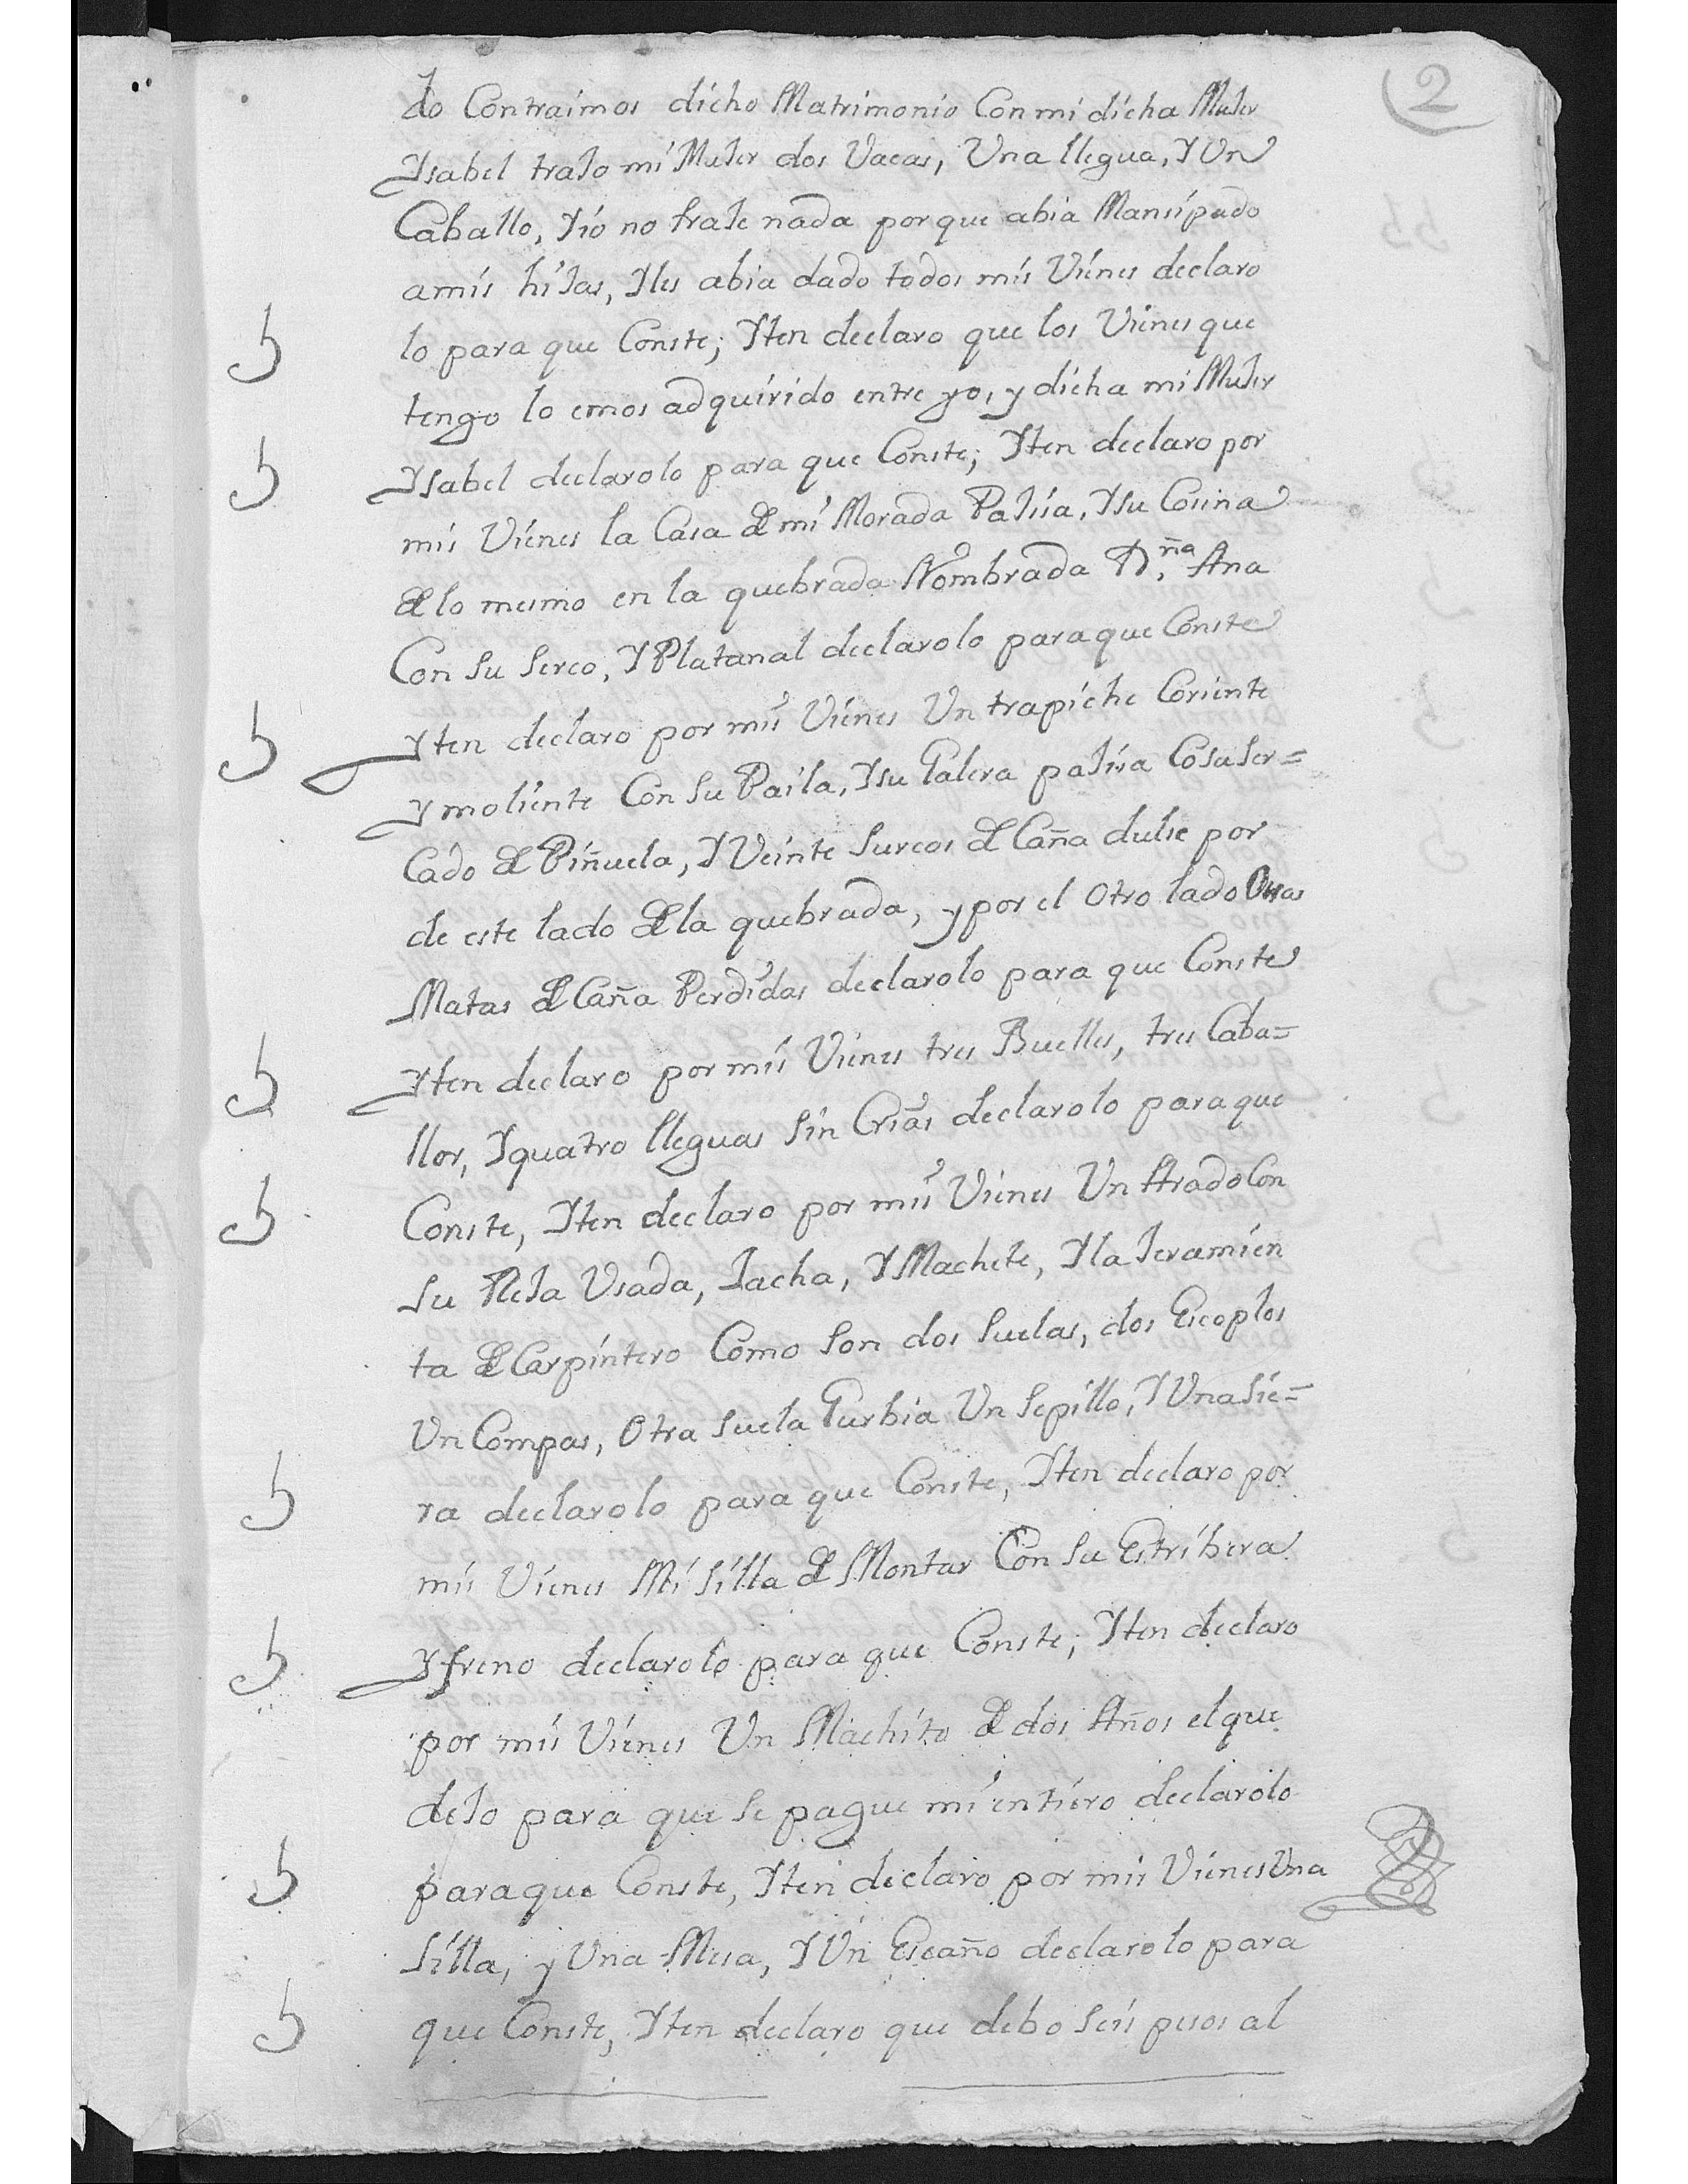 2
do Contraimos dicho Matrimonio Con mi dicha Muher
Ysabel traJo mi MuJer dos Vacas, Una llegua, Y Un
Caballo, Y ío no traJe nada por que abia Mansipado
a mis hiJas, Y les abia dado todos mis Vienes declaro
lo para que Conste; Yten declaro que los Vienes que
tengo lo emos adquirido entre yo, y dicha mi MuJer
Ysabel declarolo para que Conste; Yten declaro por
mis Vienes la Casa de mi Morada PaJisa, Y su Cosina
de lo mesmo en la quebrada Nombrada D.ña Ana
Con Su Serco, Y Platanal declarolo para que Conste
Yten declaro por mis Vienes Un trapiche Coriente
Y moliente Con Su Paila, Y su Galera paJisa Co su Ser=
Cado de Piñuela, Y Veinte Surcos de Caña dulse por
de este lado de la quebrada, y por el Otro lado Otras
Matas de Caña Perdidas declarolo para que Conste
Yten declaro por mis Vienes tres Buelles, tres Caba=
llos, Y quatro lleguas Sin Crias declarolo para que
Conste, Yten declaro por mis Vienes Un Arado Con
Su ReJa Usada, Jacha, Y Machete, Y la Jeramien
ta de Carpintero Como Son dos Suelas, dos Escoplos
Un Compas, Otra Suela Gurbia Un Sepillo, Y Una Sie=
ra declarolo para que Conste, Yten declaro por
mis Vienes Mi Silla de Montar Con Su Estribera
Y freno declarolo para que Conste; Yten declaro
por mis Vienes Un Machito de dos Años el que
deJo para que Se pague mi entiero declarolo
para que Conste, Yten declaro por mis Vienes Una
Silla, y Una Mesa, Y Un Escaño declarolo para
que Conste, Yten declaro que debo Seis pesos al